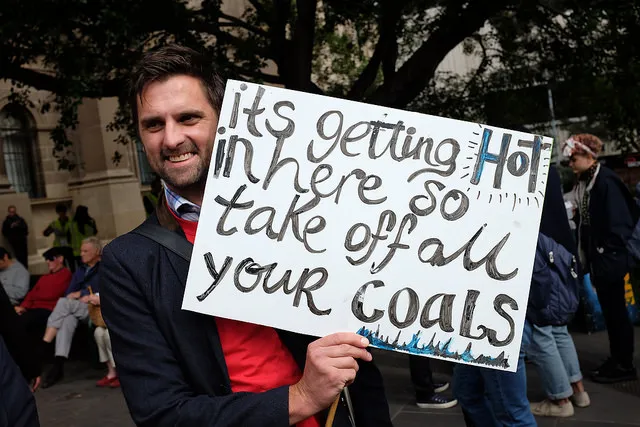 its getting Hot
in here so
take off all
your COALS